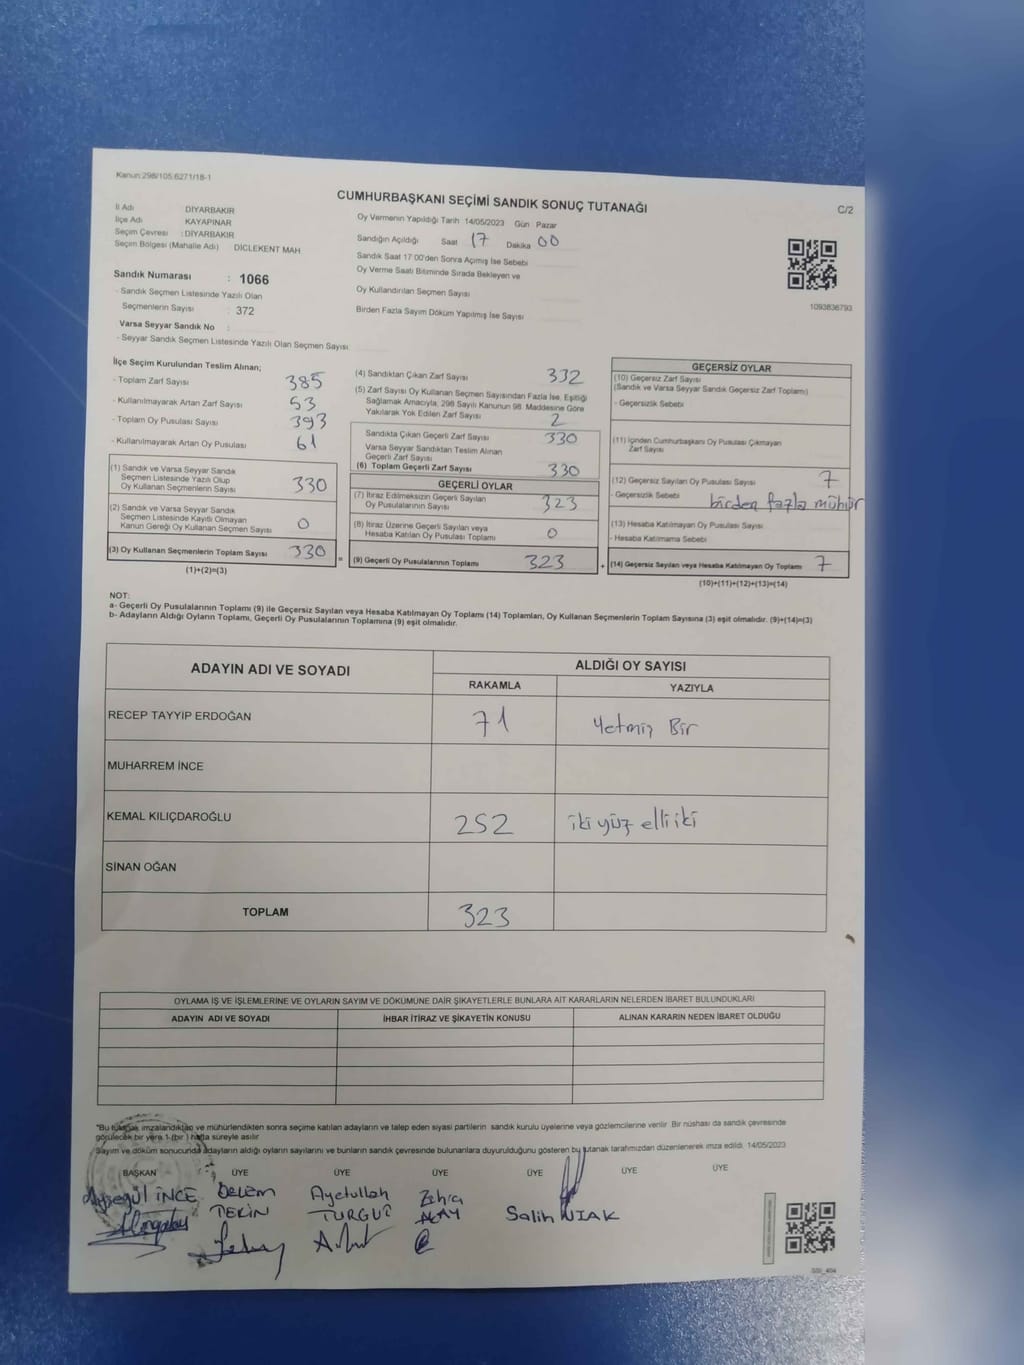 Kanun:298/105.6271/18-1
CUMHURBAŞKANI SEÇİMİ SANDIK SONUÇ TUTANAĞI
C/2
İl Adı DİYARBAKIR
İlçe Adı KAYAPINAR
Seçim Çevresi : DİYARBAKIR
Seçim Bölgesi (Mahalle Adı) DİCLEKENT MAH
Sandık Numarası : 1066
- Sandık Seçmen Listesinde Yazılı Olan
Seçmenlerin Sayısı : 372
Varsa Seyyar Sandık No :
- Seyyar Sandık Seçmen Listesinde Yazılı Olan Seçmen Sayısı
Oy Vermenin Yapıldığı Tarih 14/05/2023 Gün Pazar
Sandığın Açıldığı Saat 17 Dakika 00
Sandık Saat 17:00'den Sonra Açılmış İse Sebebi
Oy Verme Saati Bitiminde Sırada Bekleyen ve
Oy Kullandırılan Seçmen Sayısı
Birden Fazla Sayım Döküm Yapılmış İse Sayısı
1093836793
İlçe Seçim Kurulundan Teslim Alınan;
- Toplam Zarf Sayısı 385
- Kullanılmayarak Artan Zarf Sayısı 53
- Toplam Oy Pusulası Sayısı 393
- Kullanılmayarak Artan Oy Pusulası 61
(1) Sandık ve Varsa Seyyar Sandık
Seçmen Listesinde Yazılı Olup
Oy Kullanan Seçmenlerin Sayısı 330
(2) Sandık ve Varsa Seyyar Sandık
Seçmen Listesinde Kayıtlı Olmayan
Kanun Gereği Oy Kullanan Seçmen Sayısı 0
(3) Oy Kullanan Seçmenlerin Toplam Sayısı 330 =
(1)+(2)=(3)
(4) Sandıktan Çıkan Zarf Sayısı 332
(5) Zarf Sayısı Oy Kullanan Seçmen Sayısından Fazla İse, Eşitliği
Sağlamak Amacıyla, 298 Sayılı Kanunun 98. Maddesine Göre
Yakılarak Yok Edilen Zarf Sayısı 2
Sandıkta Çıkan Geçerli Zarf Sayısı 330
Varsa Seyyar Sandıktan Teslim Alınan
Geçerli Zarf Sayısı
(6) Toplam Geçerli Zarf Sayısı 330
GEÇERLİ OYLAR
(7) İtiraz Edilmeksizin Geçerli Sayılan
Oy Pusulalarının Sayısı 323
(8) İtiraz Üzerine Geçerli Sayılan veya
Hesaba Katılan Oy Pusulası Toplamı 0
(9) Geçerli Oy Pusulalarının Toplamı 323 +
GEÇERSİZ OYLAR
(10) Geçersiz Zarf Sayısı
(Sandık ve Varsa Seyyar Sandık Geçersiz Zarf Toplamı)
- Geçersizlik Sebebi
(11) İçinden Cumhurbaşkanı Oy Pusulası Çıkmayan
Zarf Sayısı
(12) Geçersiz Sayılan Oy Pusulası Sayısı 7
- Geçersizlik Sebebi birden fazla mühür
(13) Hesaba Katılmayan Oy Pusulası Sayısı
- Hesaba Katılmama Sebebi
(14) Geçersiz Sayılan veya Hesaba Katılmayan Oy Toplamı 7
(10)+(11)+(12)+(13)=(14)
NOT:
a- Geçerli Oy Pusulalarının Toplamı (9) ile Geçersiz Sayılan veya Hesaba Katılmayan Oy Toplamı (14) Toplamları, Oy Kullanan Seçmenlerin Toplam Sayısına (3) eşit olmalıdır. (9)+(14)=(3)
b- Adayların Aldığı Oyların Toplamı, Geçerli Oy Pusulalarının Toplamına (9) eşit olmalıdır.
ADAYIN ADI VE SOYADI
ALDIĞI OY SAYISI
RAKAMLA YAZIYLA
RECEP TAYYİP ERDOĞAN 71 Yetmiş Bir
MUHARREM İNCE
KEMAL KILIÇDAROĞLU 252 iki yüz elli iki
SİNAN OĞAN
TOPLAM 323
OYLAMA İŞ VE İŞLEMLERİNE VE OYLARIN SAYIM VE DÖKÜMÜNE DAİR ŞİKAYETLERLE BUNLARA AİT KARARLARIN NELERDEN İBARET BULUNDUKLARI
ADAYIN ADI VE SOYADI İHBAR İTİRAZ VE ŞİKAYETİN KONUSU ALINAN KARARIN NEDEN İBARET OLDUĞU
*Bu tutanak imzalandıktan ve mühürlendikten sonra seçime katılan adayların ve talep eden siyasi partilerin sandık kurulu üyelerine veya gözlemcilerine verilir. Bir nüshası da sandık çevresinde
görülecek bir yere 1 (bir ) hafta süreyle asılır
Sayım ve döküm sonucunda adayların aldığı oyların sayılarını ve bunların sandık çevresinde bulunanlara duyurulduğunu gösteren bu tutanak tarafımızdan düzenlenerek imza edildi. 14/05/2023
BAŞKAN ÜYE ÜYE ÜYE ÜYE ÜYE ÜYE
Ayşegül İNCE Ayetullah Zehra Salih
TEKİN TURGUT